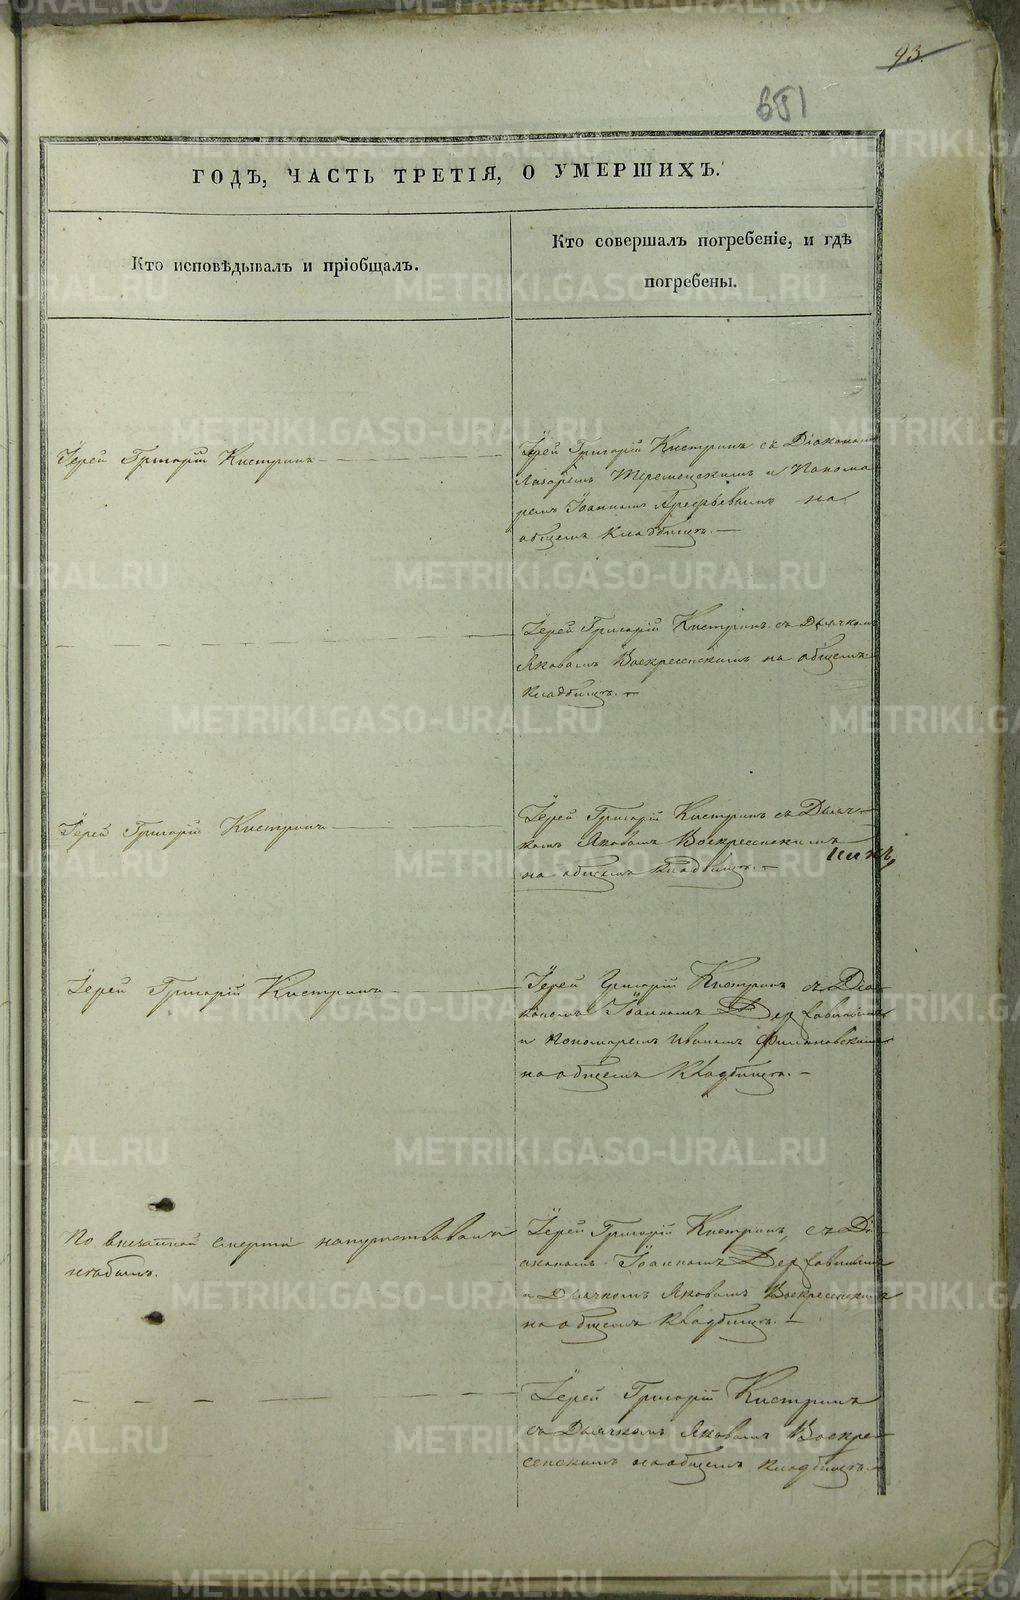 93.
651
ГОДЪ, ЧАСТЬ ТРЕТІЯ, О УМЕРШИХЪ.
Кто исповѣдывалъ и пріобщалъ.
Кто совершалъ погребеніе, и гдѣ
погребены.
Іерей Григорій Кистринъ
Іерей Григорій Кистринъ съ Діакономъ
Лазаремъ и Понома
ремъ Іоанномъ на
общемъ кладбищѣ.
Іерей Григорій Кистринъ съ Дьячкомъ
Яковомъ Воскресенскимъ на общемъ
кладбищѣ.
Іерей Григорій Кистринъ
Іерей Григорій Кистринъ съ Дьяч
комъ Яковомъ Воскресенскимъ
на общемъ кладбищѣ.
Іерей Григорій Кистринъ
Іерей Григорій Кистринъ съ Діа
кономъ Іоанномъ Державинымъ
и Пономаремъ Иваномъ
на общемъ кладбищѣ.
По внезапной смерти напутствованъ
небылъ.
Іерей Григорій Кистринъ, съ Ді
акономъ Іоанномъ Державинымъ
и Дьячкомъ Яковомъ Воскресенскимъ
на общемъ кладбищѣ.
Іерей Григорій Кистринъ
съ Дьячкомъ Яковомъ Воскре
сенскимъ на общемъ кладбищѣ
METRIKI.GASO-URAL.RU